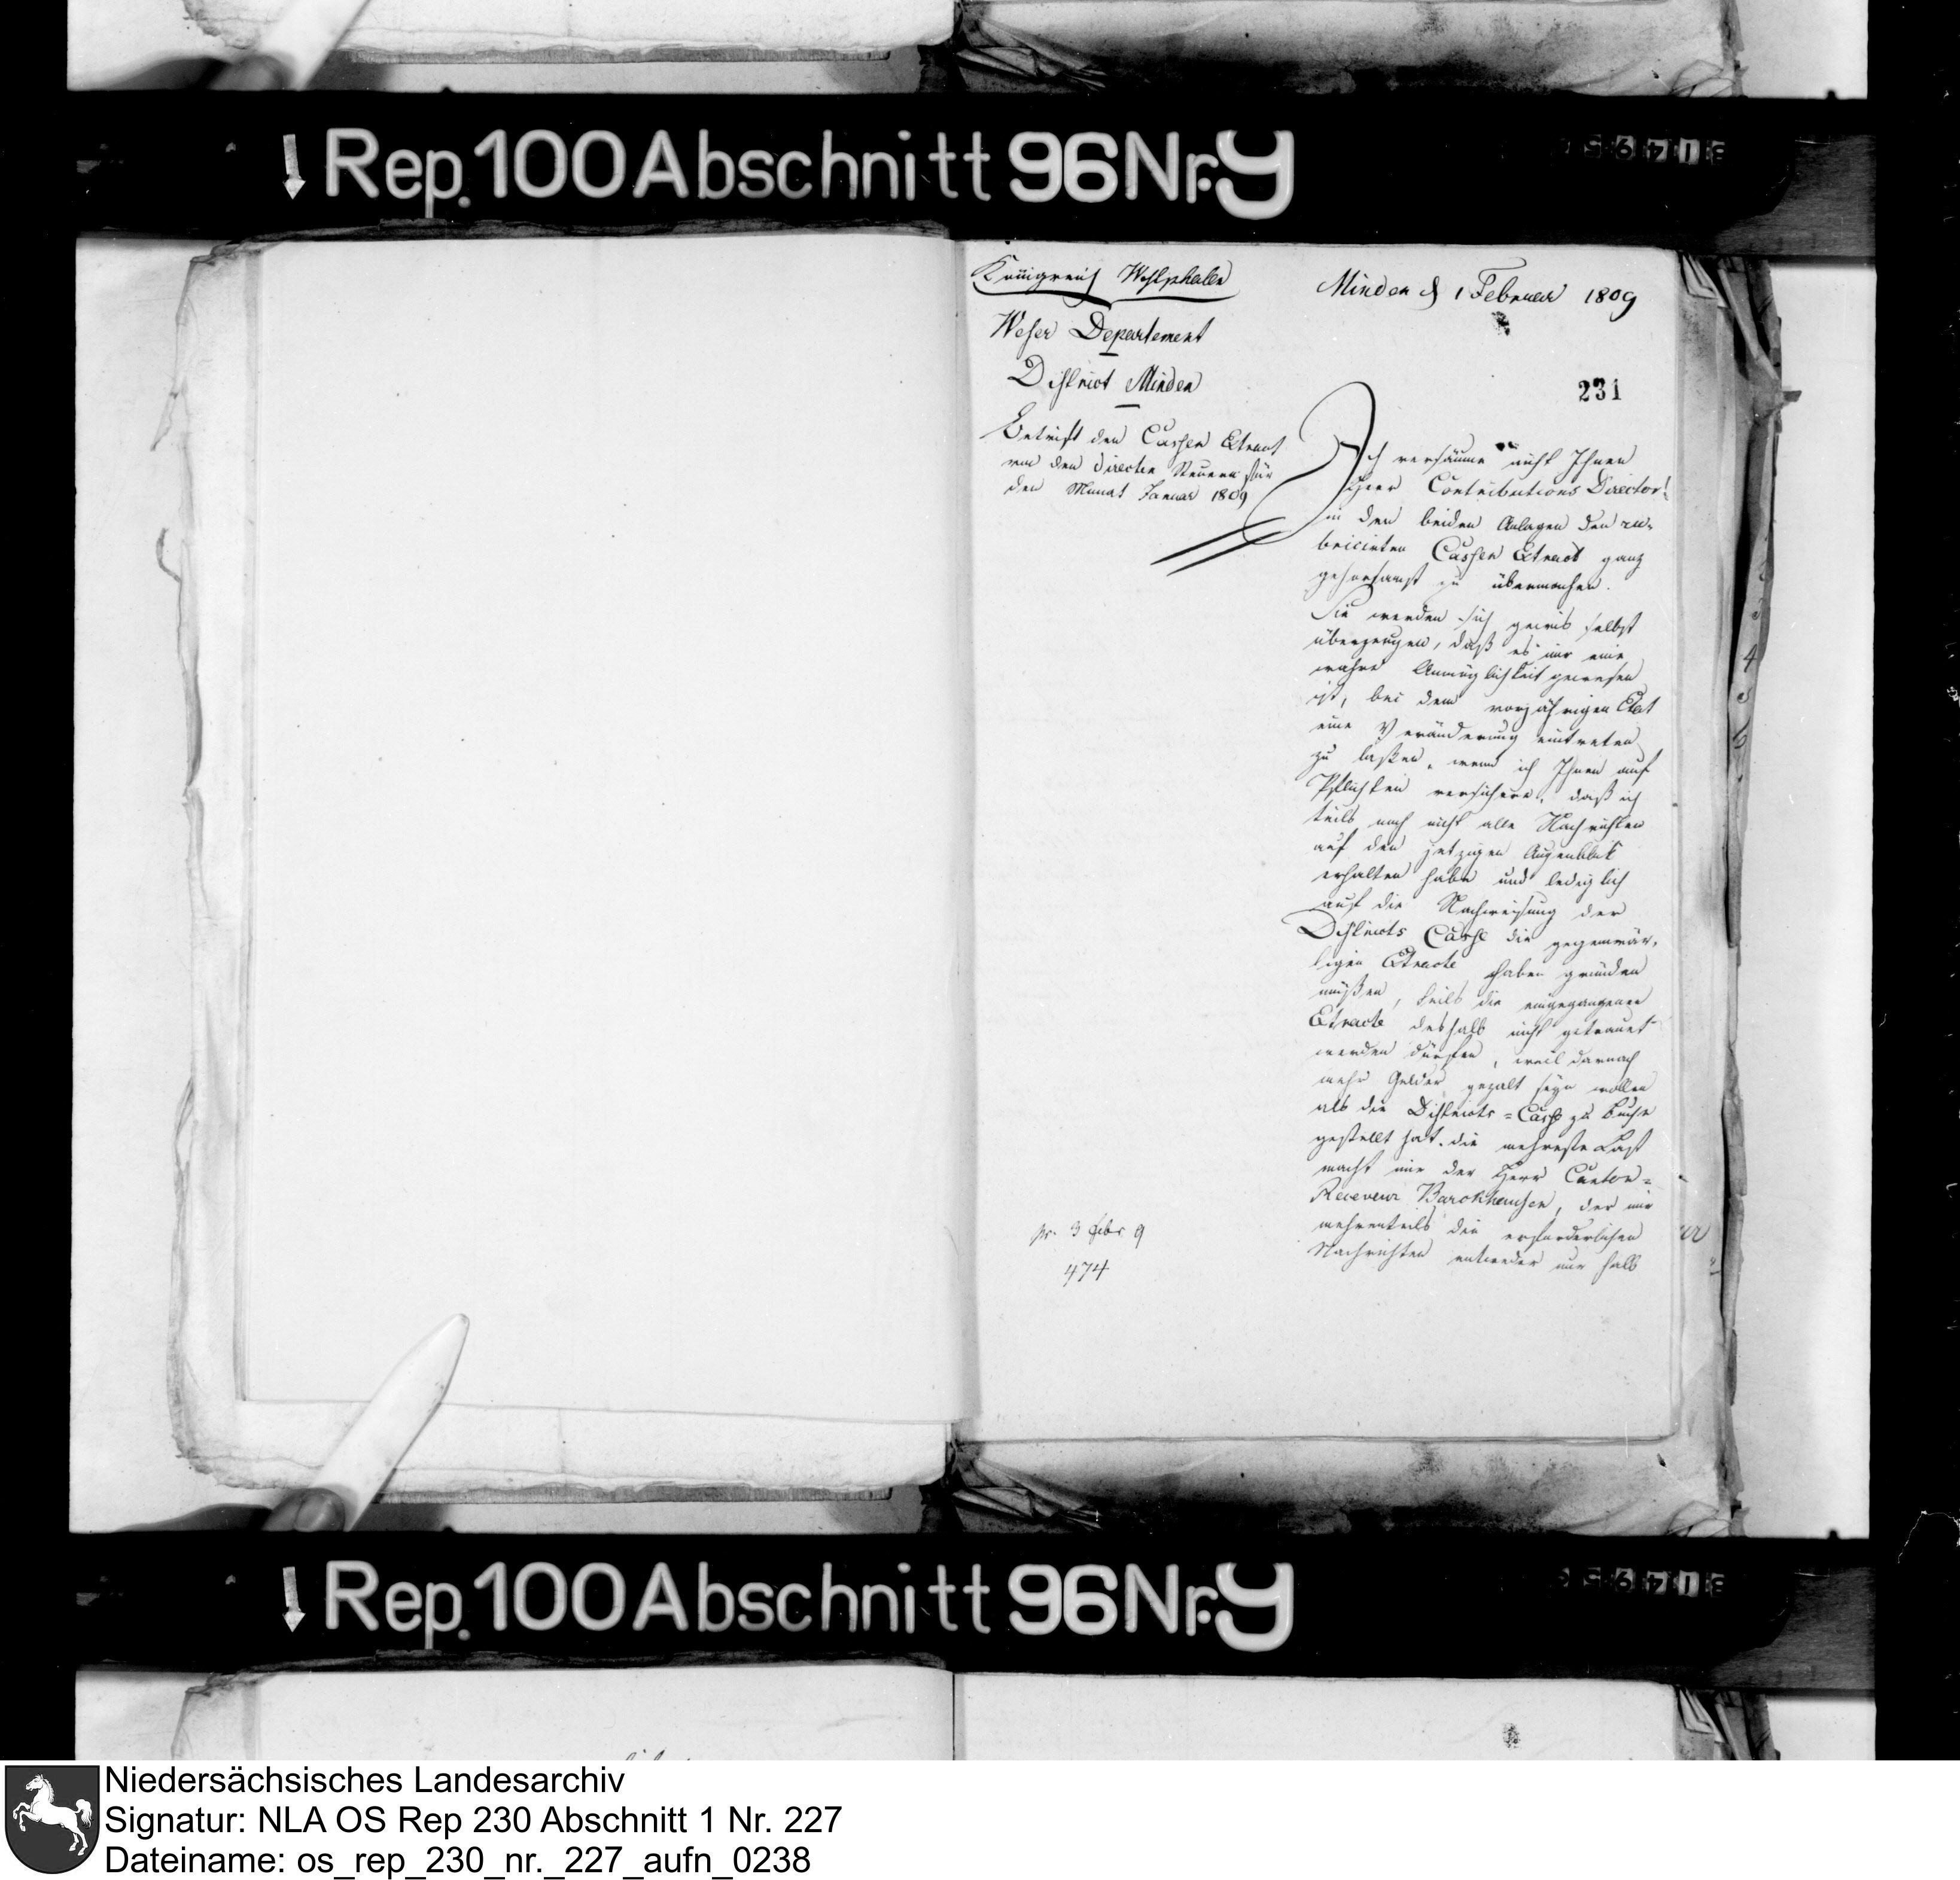 Rep. 100 Abschnitt 96 Nr. 9
Königreich Westphalen
Weser Departement
District Minden
Betrift den Cassen Etract
von den directen Steuern für
den Monat Januar 1809
Minden d 1 Februar 1809
231
Ich versäume nicht Ihnen
Herr Contributions Director!
in den beiden Anlagen den ru-
bricirten Cassen Etract ganz
gehorsamst zu übermachen.
Sie werden sich gewis selbst
überzeugen, daß es mir eine
wahre Unmöglichkeit gewesen
ist, bei dem vorjährigen Etat
eine Veränderung eintreten
zu laßen, wenn ich Ihnen auf
Pflichten versichere, daß ich
teils noch nicht alle Nachrichten
auf den jetzigen Augenblik
erhalten habe und lediglich
auf die Nachweisung der
Districts Casse die gegenwär-
tigen Etracte haben gründen
müßen, teils die eingegangenen
Etracte deshalb nicht getrauet
werden dürfen, weil darnach
mehr Gelder gezalt seyn wollen
als die Districts-Casse zu Buche
gestellt hat. die mehreste Last
macht mir der Herr Canton-
Receveur Barckhausen, der mir
mehrenteils die erforderlichen
Nachrichten entweder nur halb
pr. 3 Febr 9
474
Rep. 100 Abschnitt 96 Nr. 9
Niedersächsisches Landesarchiv
Signatur: NLA OS Rep 230 Abschnitt 1 Nr. 227
Dateiname: os_rep_230_nr._227_aufn_0238